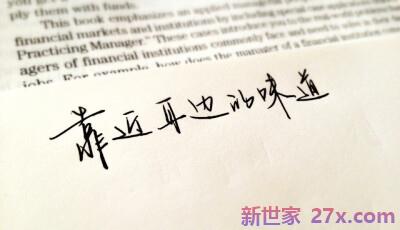 ply them with funds.
This book emphasizes an applied
financial markets and institutions by including
Practicing Manager." These cases introduce
agers of financial institutions commonly face and
jobs. For example, how does the manager of a financial institution
靠近耳边的味道
新世家 27x.com